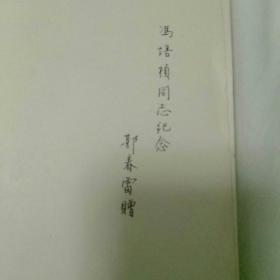 冯培祯同志纪念
郭春雷赠